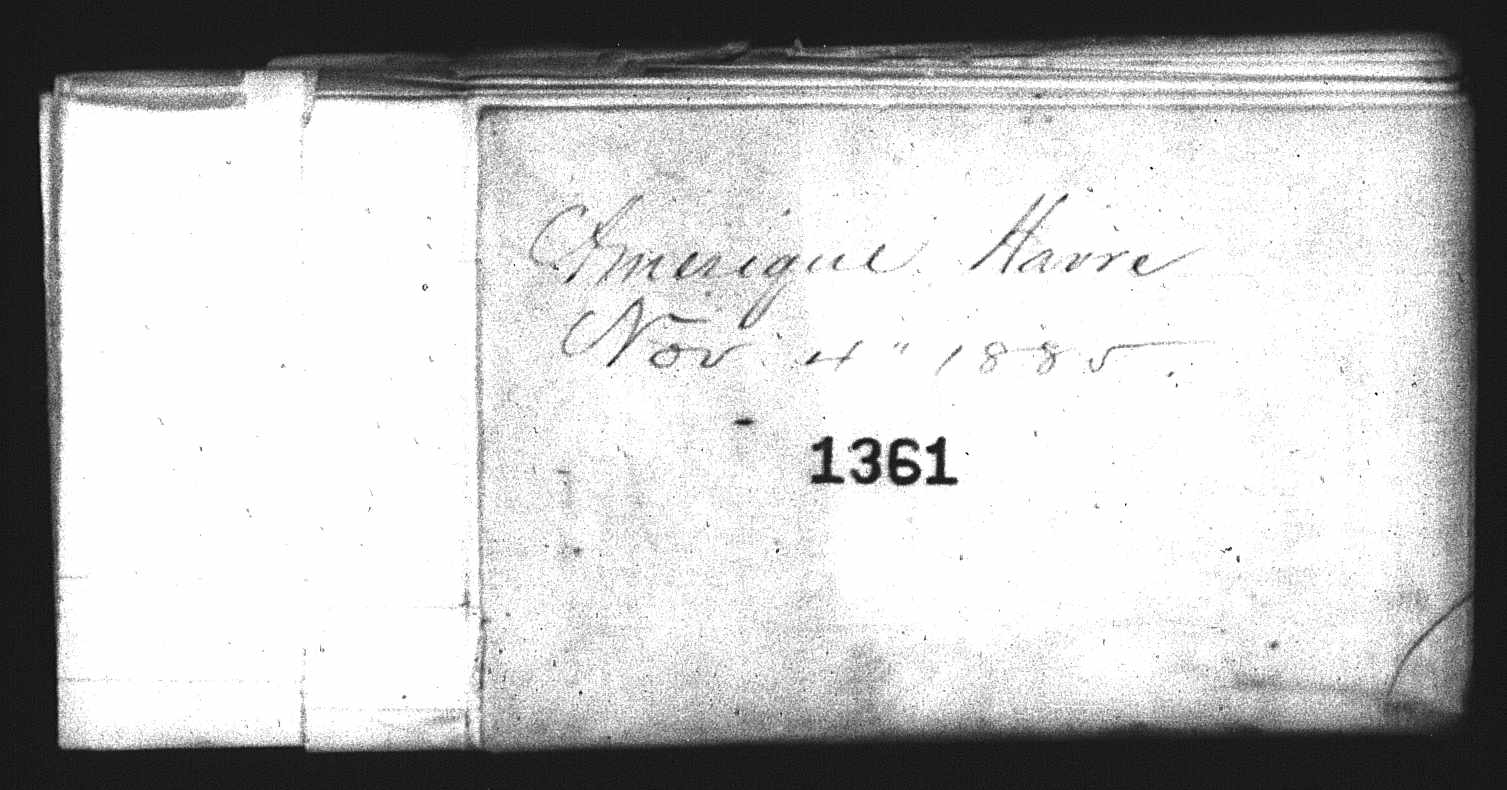 Amerique Havre
Nov 4" 1885.
1361